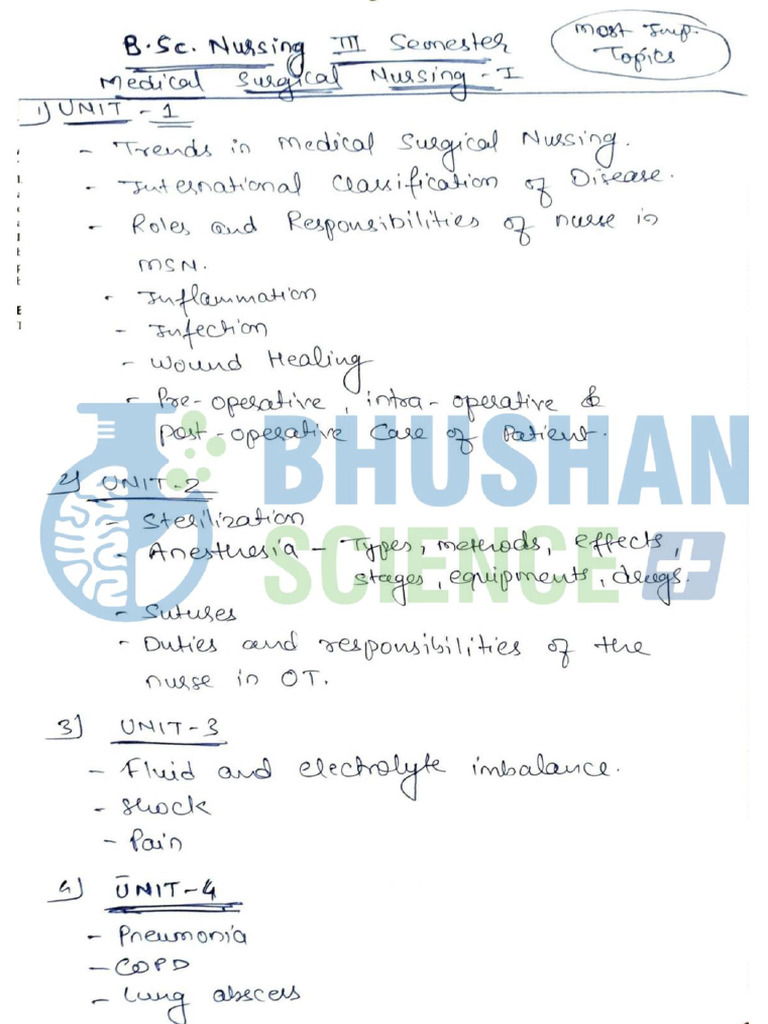 B.Sc. Nursing III Semester
Most Imp.
Topics
Medical Surgical Nursing - I
1) UNIT - 1
- Trends in Medical Surgical Nursing.
- International Classification of Disease.
- Roles and Responsibilities of nurse in
MSN.
- Inflammation
- Infection
- Wound Healing
- Pre-operative, intra-operative &
Post-operative Care of Patient.
BHUSHAN
SCIENCE
2) UNIT-2
- Sterilization
- Anesthesia - Types, methods, effects,
stages, equipments, drugs.
- Sutures
- Duties and responsibilities of the
nurse in OT.
3) UNIT-3
- Fluid and electrolyte imbalance.
- Shock
- Pain
4) UNIT-4
- Pneumonia
- COPD
- Lung abscess